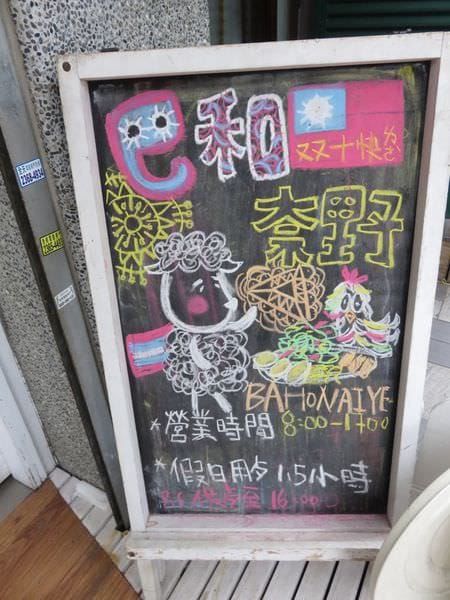 巴和
双十快乐
奈野
BAHONAIYE
*營業時間 8:00-1700
*假日用歺 1.5小時